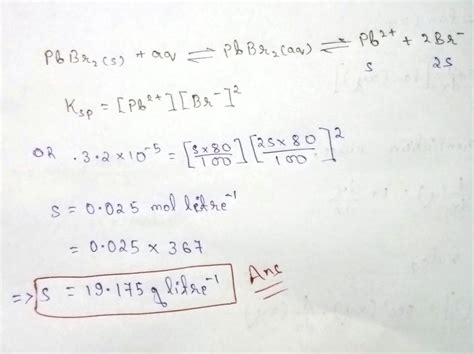 PbBr₂(s) + aq ⇌ PbBr₂(aq) ⇌ Pb²⁺ + 2Br⁻
s 2s
Ksp = [Pb²⁺][Br⁻]²
OR 3.2 × 10⁻⁵ = [s×80/100] [2s×80/100]²
s = 0.025 mol litre⁻¹
= 0.025 × 367
⇒ s = 19.175 g litre⁻¹ Ans